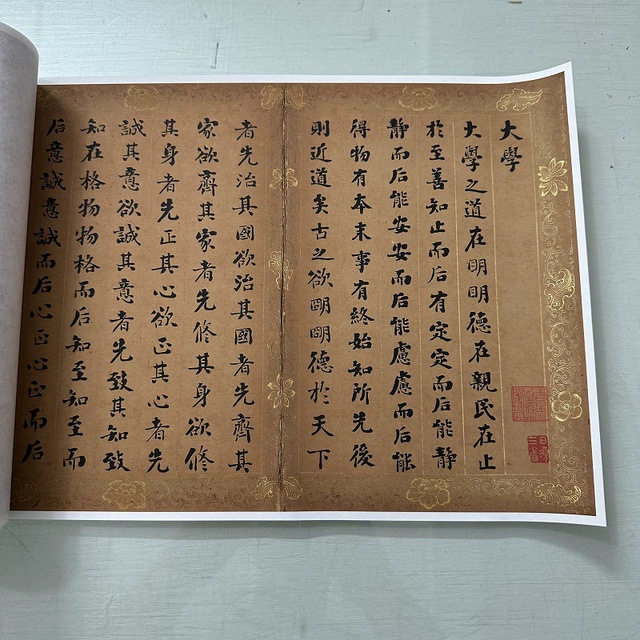 大學
大學之道在明明德在親民在止
於至善知止而后有定定而后能靜
靜而后能安安而后能慮慮而后能
得物有本末事有終始知所先後
則近道矣古之欲朙朙德於天下
者先治其國欲治其國者先齊其
家欲齊其家者先修其身欲修
其身者先正其心欲正其心者先
誠其意欲誠其意者先致其知致
知在格物物格而后知至知至而
后意誠意誠而后心正心正而后